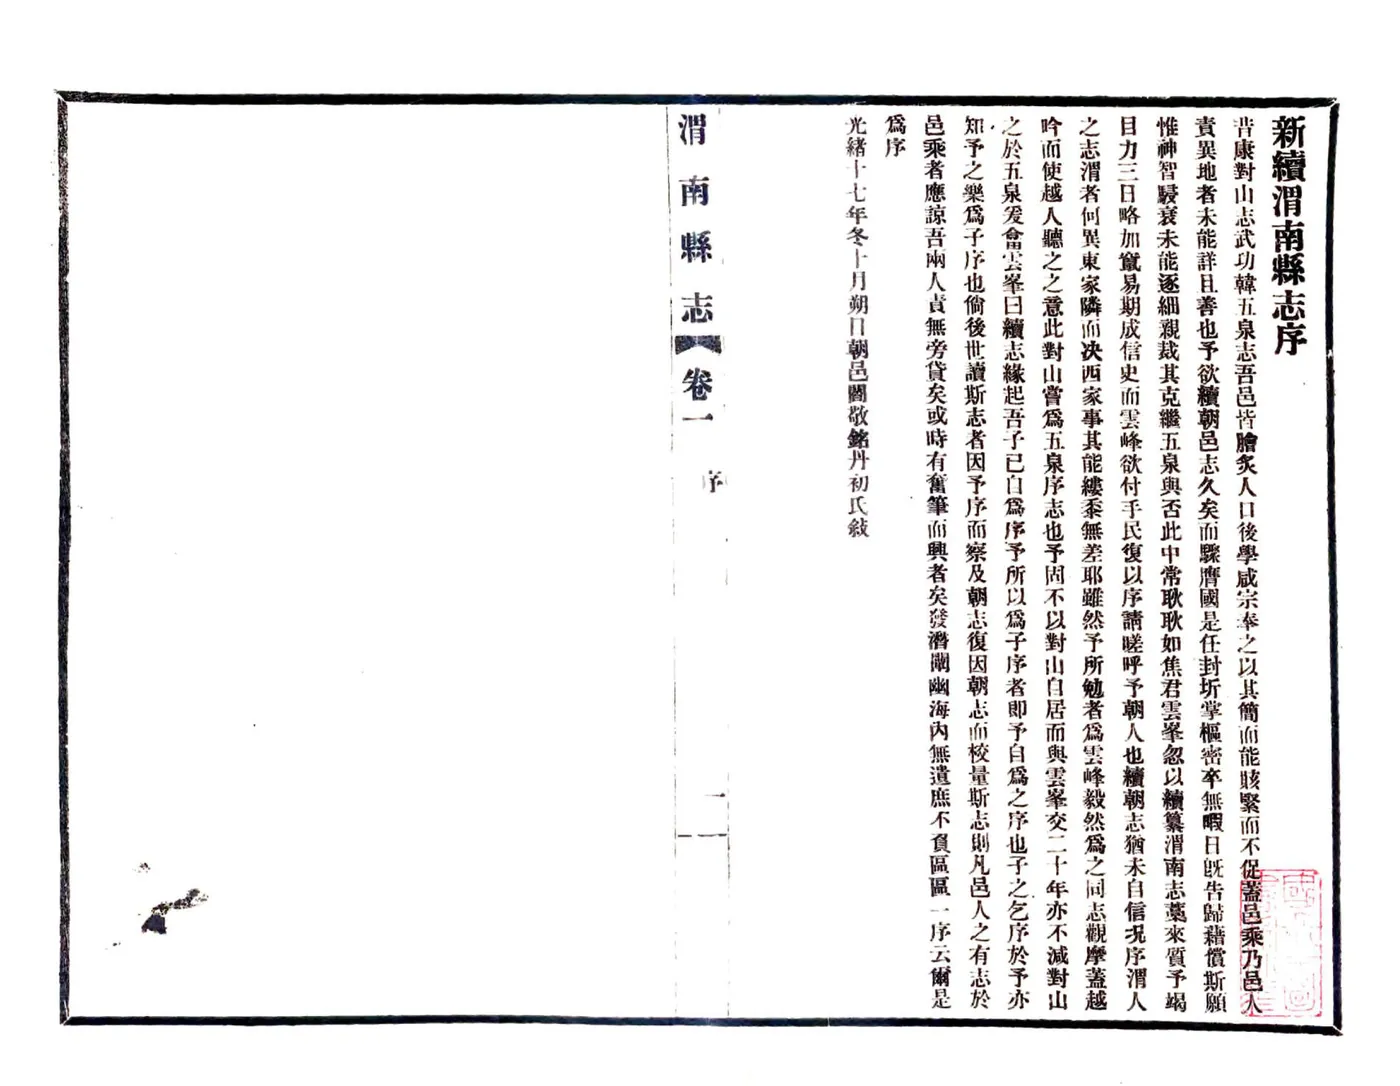 新續渭南縣志序
昔康對山志武功韓五泉志吾邑皆膾炙人口後學咸宗奉之以其簡而能賅緊而不促蓋邑乘乃邑人
責異地者未能詳且善也予欲續朝邑志久矣而驟膺國是任封圻掌樞密卒無暇日旣告歸藉償斯願
惟神智騣衰未能逐細親裁其克繼五泉與否此中常耿耿如焦君雲峯忽以續纂渭南志藁來質予竭
目力三日略加竄易期成信史而雲峰欲付手民復以序請嗟呼予朝人也續朝志猶未自信况序渭人
之志渭者何異東家隣而决西家事其能縷黍無差耶雖然予所勉者爲雲峰毅然爲之同志觀摩蓋越
吟而使越人聽之之意此對山嘗爲五泉序志也予固不以對山自居而與雲峯交二十年亦不減對山
之於五泉爰會雲峯曰續志緣起吾子已自爲序予所以爲子序者即予自爲之序也子之乞序於予亦
知予之樂爲子序也倘後世讀斯志者因予序而察及朝志復因朝志而校量斯志則凡邑人之有志於
邑乘者應諒吾兩人責無旁貸矣或時有奮筆而興者矣發潛闡幽海內無遺庶不負區區一序云爾是
爲序
光緒十七年冬十月朔日朝邑閻敬銘丹初氏敍
渭南縣志
卷一
序
一